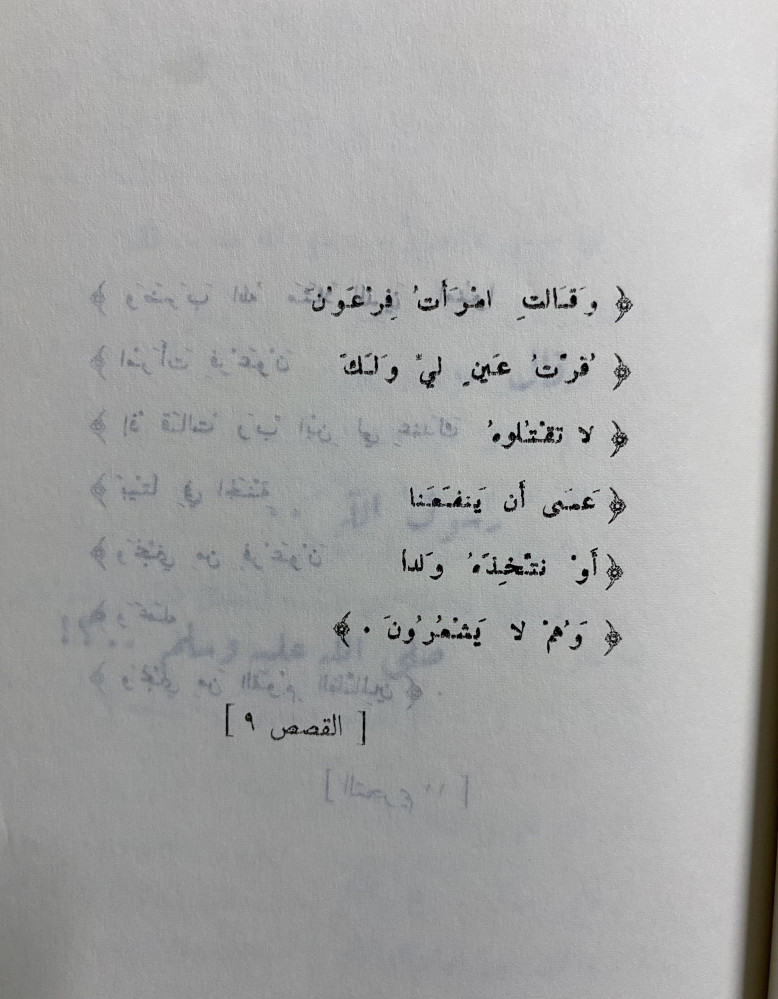 ﴿ وَقَالتِ امْرَأتُ فِرْعَوْنَ
﴿ قُرّتُ عَينٍ لِيْ وَلَكَ
﴿ لا تقْتُلوهُ
﴿ عَسَى أَن يَنفَعَنا
﴿ أَوْ نتّخِذَهُ وَلداً
﴿ وَهُمْ لا يَشْعُرُونَ . ﴾
[ القصص ٩ ]